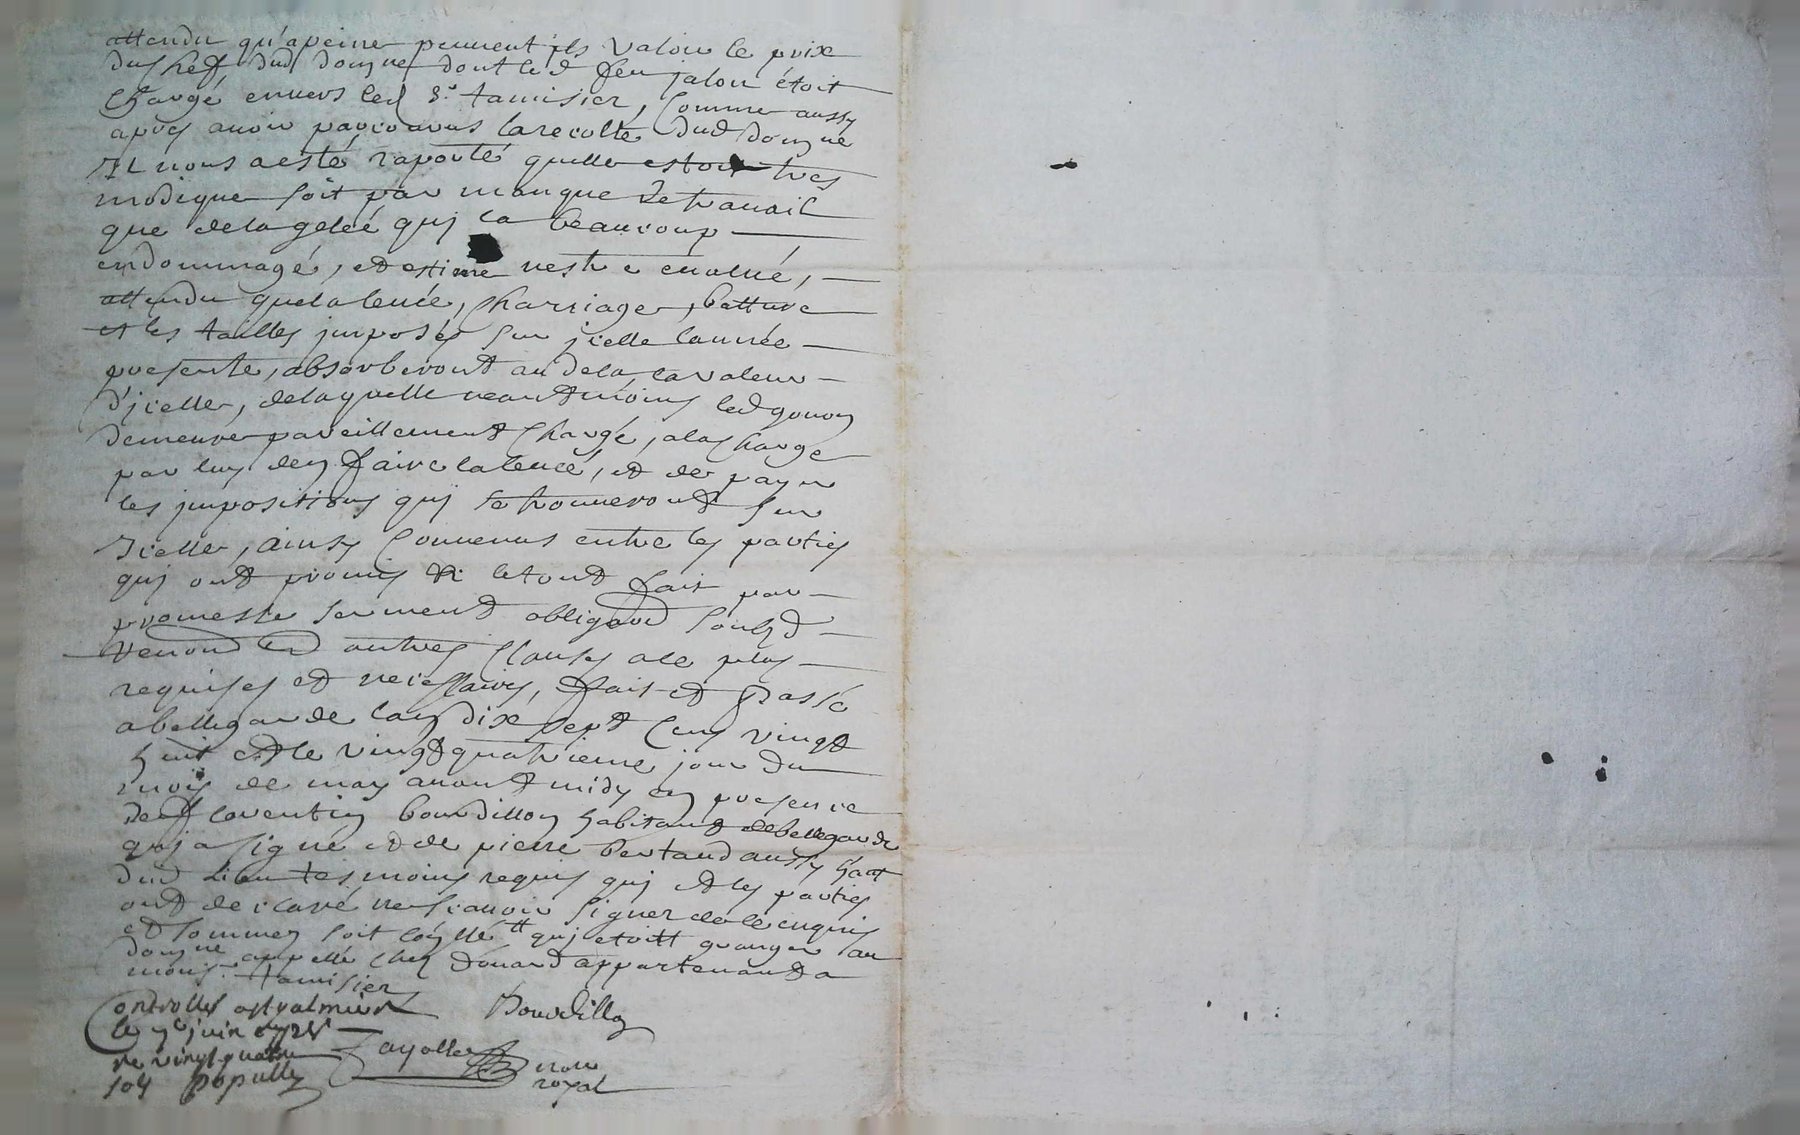 attendu qu'apeine peuuent jls valoir le prix
du cheff dud domne dont led feu jalon étoit
Chargé enuers led Sr. tamisier, Comme aussy
apres auoir parcourus la recolte dud domne
Il nous a esté raporté quelle estoit tres
modique soit par manque de trauail
que de la gelée quj la beaucoup
endommagé, et estimé neste e évalué,
attendu que la leuée, charriage, batture
et les tailles jmposés sur jcelle lannée
presente, absorberont au dela la valeur
d'jcelle, de laquelle neantmoins led gonon
demeure pareillement chargé, a la charge
par luy den faire la leuée, et de payer
les jmpositions quj se trouueront sur
Icelle, ainsy Conuenus entre les parties
quj ont promis le tout fait par
promesse serment obligeant soubz
renond et autres clauses ale plus
requises et necessaires, fait et passé
a bellegarde lan dix sept Cens vingt
huit et le vingt quatrieme jour du
mois de may auant midy en presence
de laurentin bourdillon habitant de bellegarde
quj a signé et de pierre bertaud aussy hant
dud lieu tesmoins requis quj et les parties
ont declaré ne scauoir signer de ce enquis
et sommez soit quj etoit granger au
domne appellé chez douard appartenant a
mons. tamisier
Controllé a st galmier Bourdillon
le juin 1728
re vingt quatre fayolle nore
sols pupulle royal